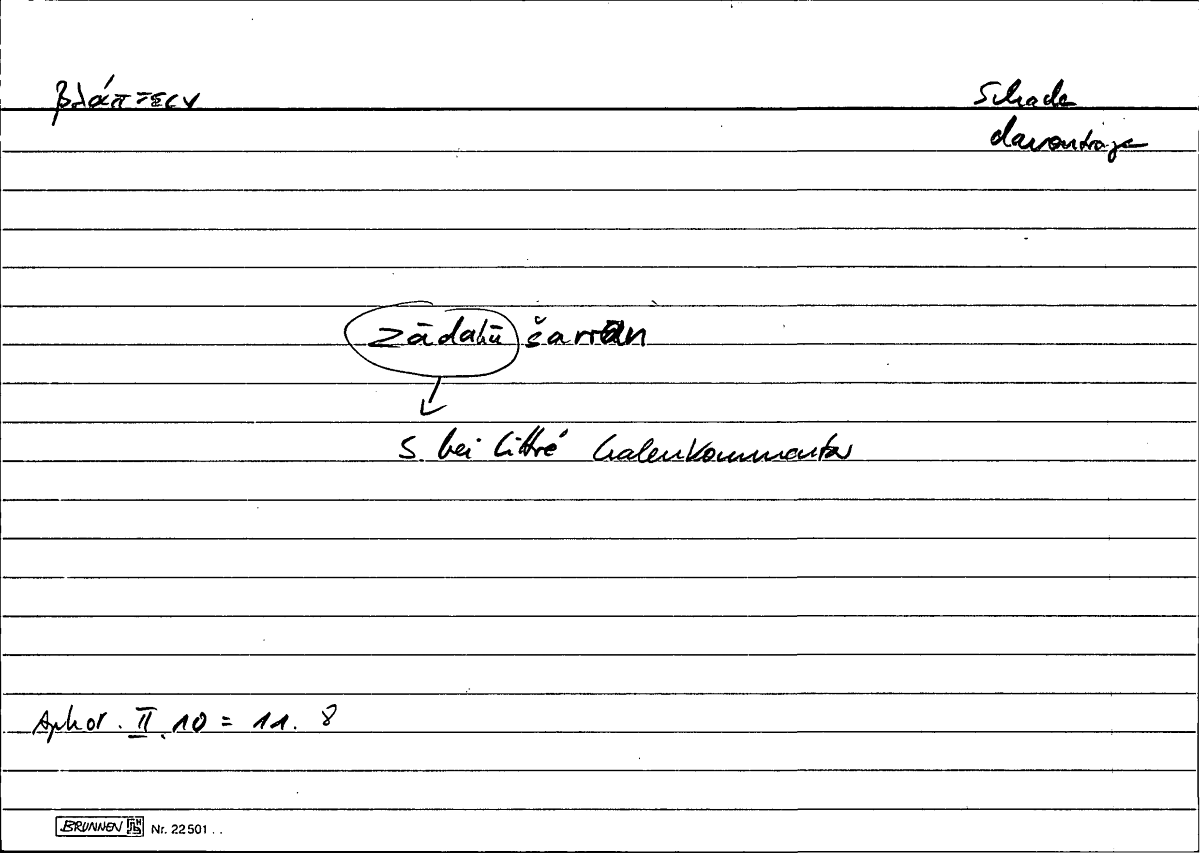 βλάπτειν Schaden
davontragen
zādahū šarran
s. bei Littré Galenkommentar
Aphor. II. 10 = 11. 8
BRUNNEN Nr. 22501 . .